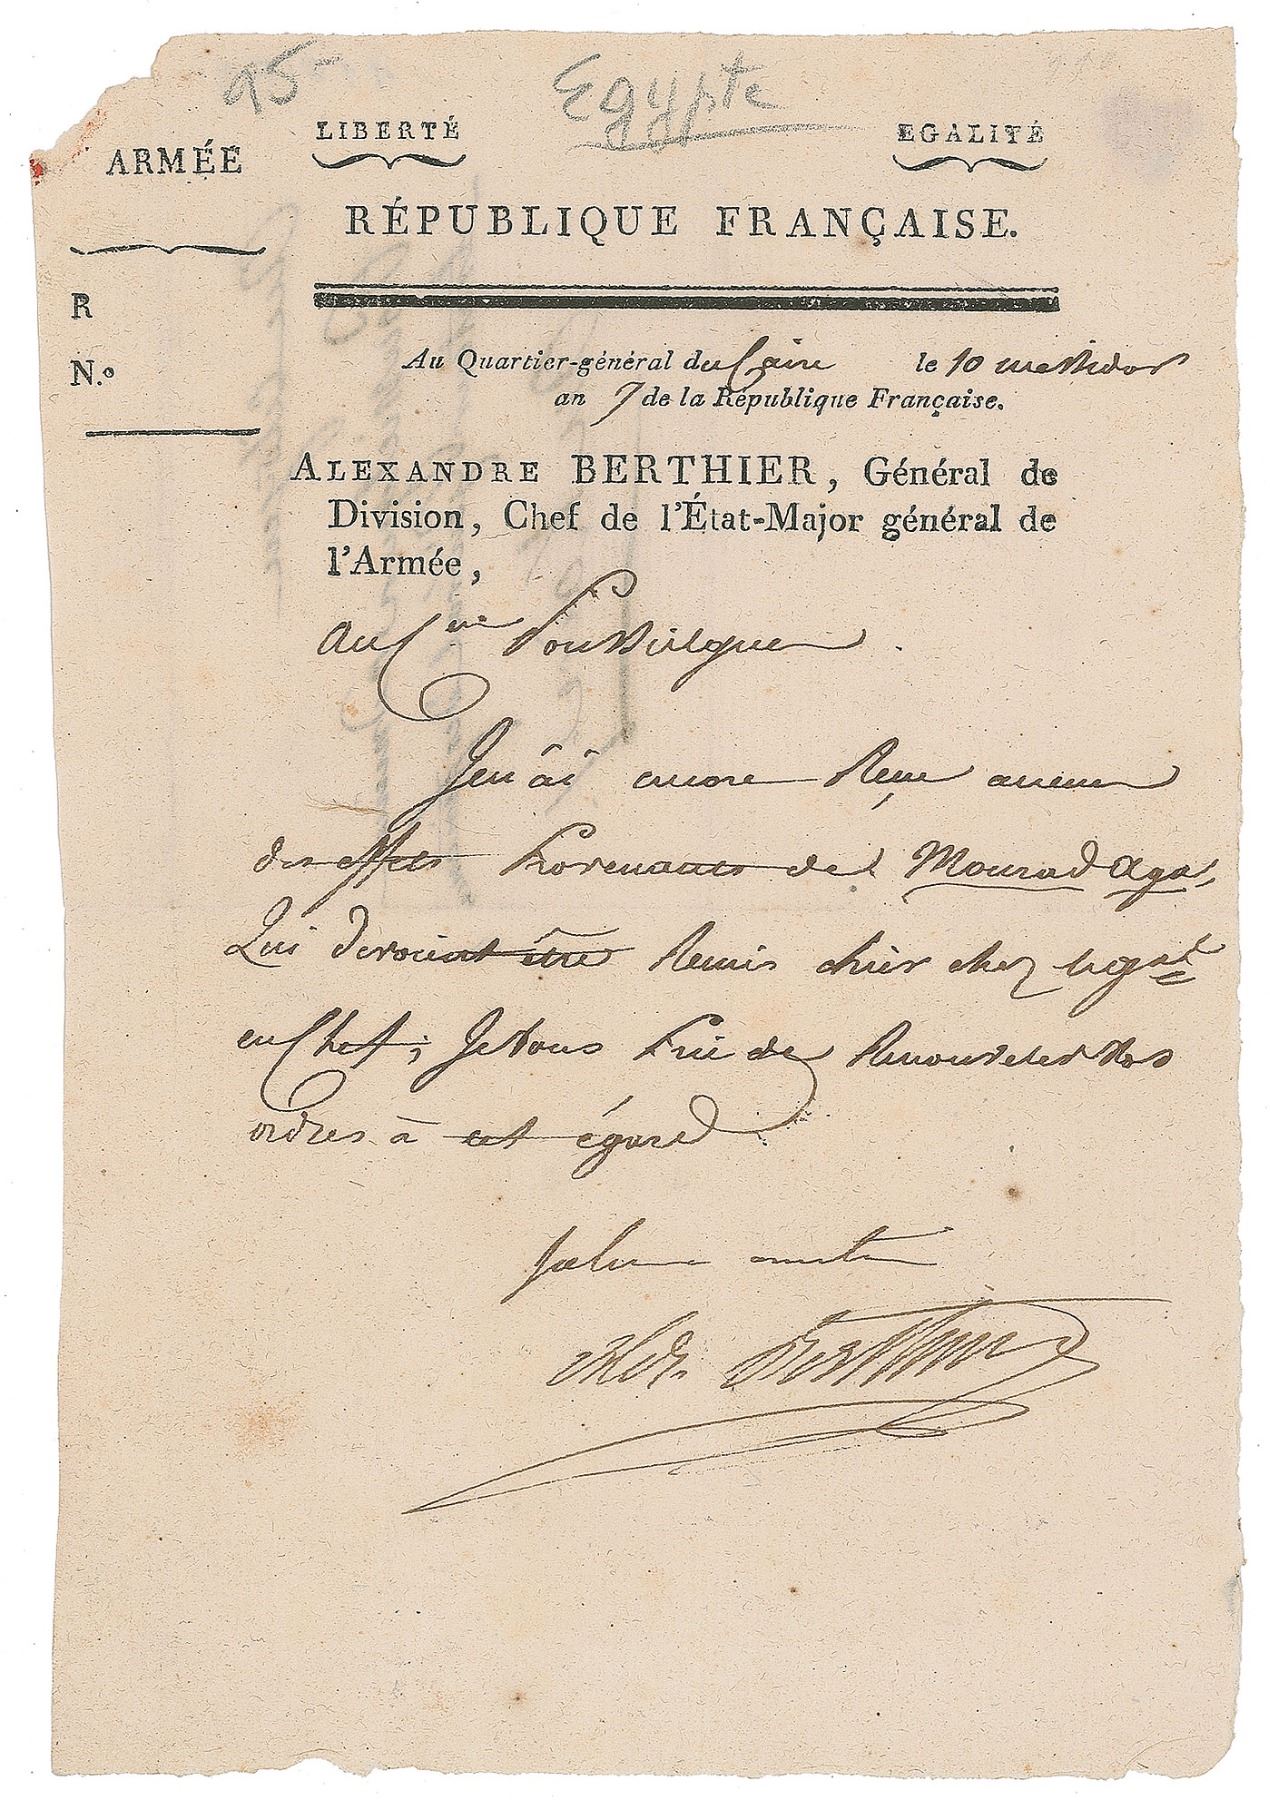 95
Egypte
LIBERTÉ
EGALITÉ
ARMÉE
RÉPUBLIQUE FRANÇAISE.
R
N.º
Au Quartier-général du Caire le 10 messidor
an 7 de la République Française.
ALEXANDRE BERTHIER, Général de
Division, Chef de l'État-Major général de
l'Armée,
Au Cen Poussielgue
Je n'ai encore Reçu aucun
des effets Provenants de Mourad aga,
Qui devoient être Remis hier chez le gal
en Chef; Je Vous Prie de Renouveler Vos
ordres à cet égard
Alex. Berthier